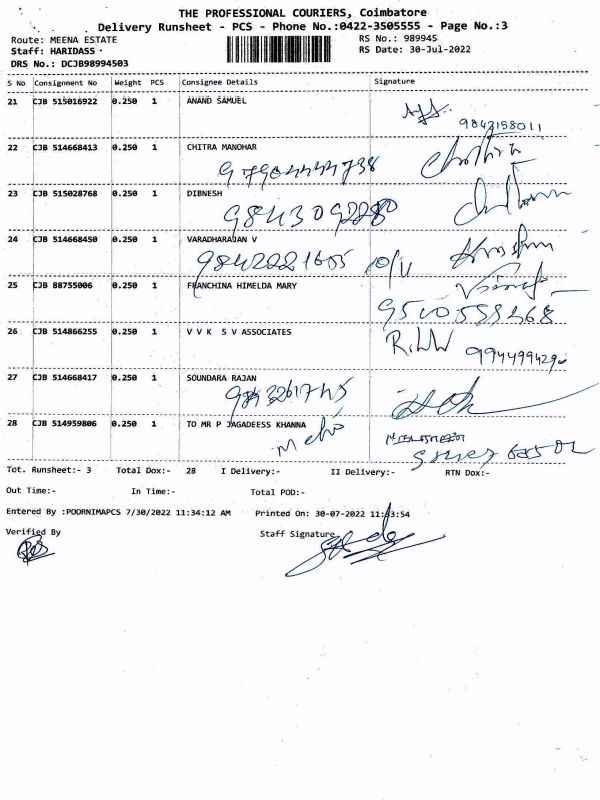 THE PROFESSIONAL COURIERS, Coimbatore
Delivery Runsheet - PCS - Phone No.:0422-3505555 - Page No.:3
Route: MEENA ESTATE RS No.: 989945
Staff: HARIDASS RS Date: 30-Jul-2022
DRS No.: DCJB98994503
S No Consignment No Weight PCS Consignee Details Signature
21 CJB 515016922 0.250 1 ANAND SAMUEL
9843158011
22 CJB 514668413 0.250 1 CHITRA MANOHAR
23 CJB 515028768 0.250 1 DIBNESH
9843092280
24 CJB 514668450 0.250 1 VARADHARAJAN V
25 CJB 88755006 0.250 1 FRANCHINA HIMELDA MARY
26 CJB 514866255 0.250 1 V V K S V ASSOCIATES
27 CJB 514668417 0.250 1 SOUNDARA RAJAN
28 CJB 514959806 0.250 1 TO MR P JAGADEESS KHANNA
Tot. Runsheet:- 3 Total Dox:- 28 I Delivery:- II Delivery:- RTN Dox:-
Out Time:- In Time:- Total POD:-
Entered By :POORNIMAPCS 7/30/2022 11:34:12 AM Printed On: 30-07-2022 11:33:54
Verified By Staff Signature